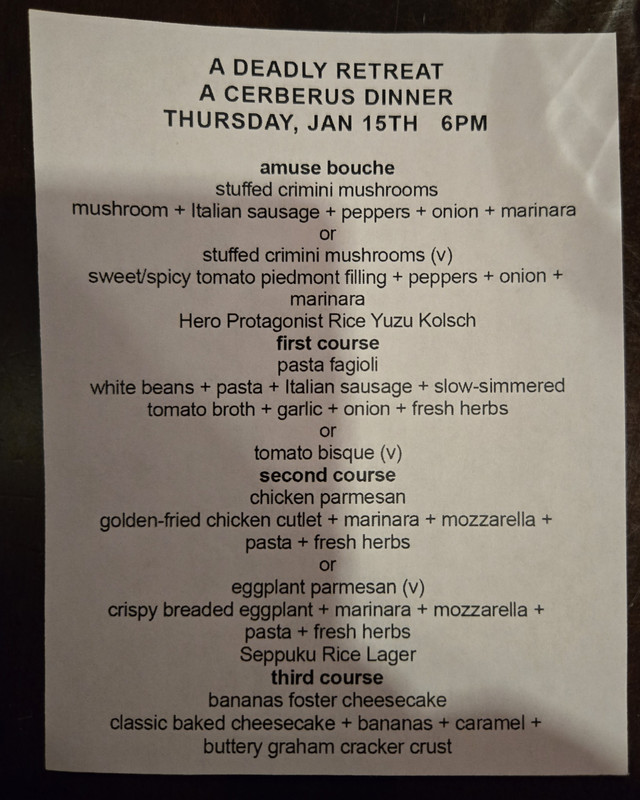 A DEADLY RETREAT
A CERBERUS DINNER
THURSDAY, JAN 15TH 6PM
amuse bouche
stuffed crimini mushrooms
mushroom + Italian sausage + peppers + onion + marinara
or
stuffed crimini mushrooms (v)
sweet/spicy tomato piedmont filling + peppers + onion +
marinara
Hero Protagonist Rice Yuzu Kolsch
first course
pasta fagioli
white beans + pasta + Italian sausage + slow-simmered
tomato broth + garlic + onion + fresh herbs
or
tomato bisque (v)
second course
chicken parmesan
golden-fried chicken cutlet + marinara + mozzarella +
pasta + fresh herbs
or
eggplant parmesan (v)
crispy breaded eggplant + marinara + mozzarella +
pasta + fresh herbs
Seppuku Rice Lager
third course
bananas foster cheesecake
classic baked cheesecake + bananas + caramel +
buttery graham cracker crust